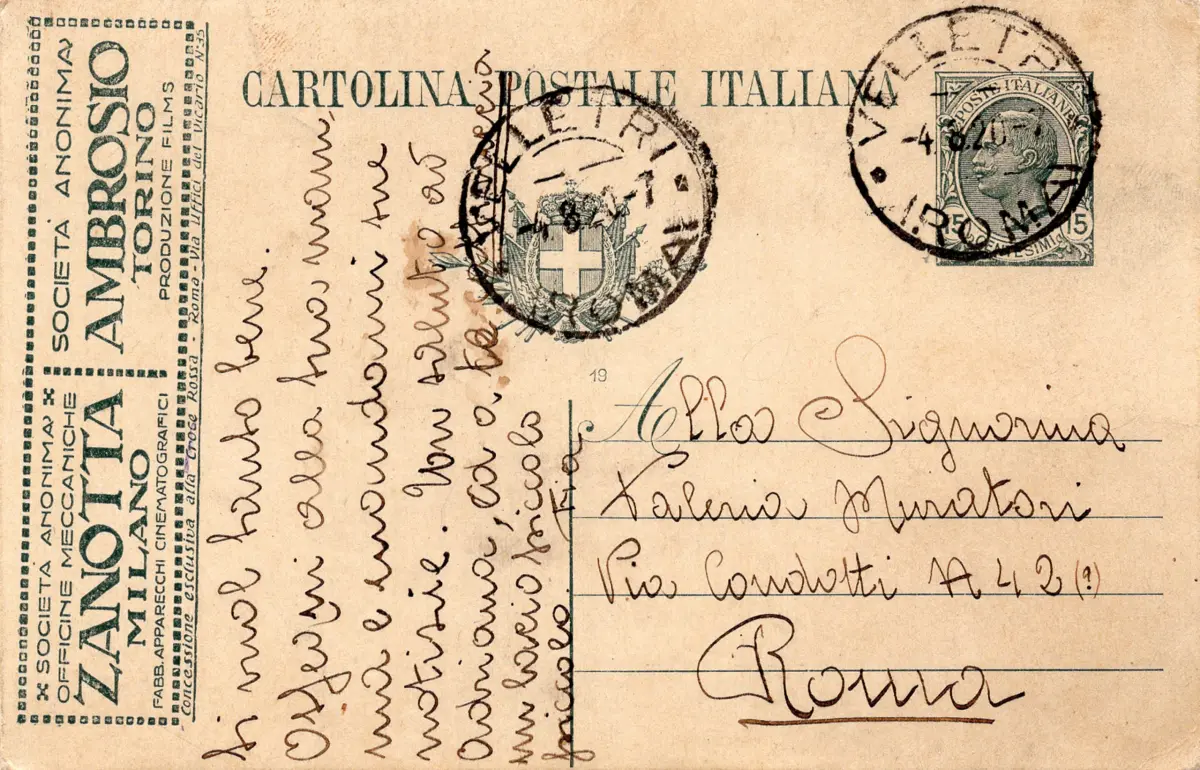 CARTOLINA POSTALE ITALIANA
VELLETRI
-4.8.20-7
(ROMA)
POSTE ITALIANE
15 CENTESIMI 15
VELLETRI
-4.8.2 -7
(ROMA)
19
Alla Signorina
Valeria Muratori
Via Condotti N 42 (?)
Roma
SOCIETÀ ANONIMA
AMBROSIO
TORINO
PRODUZIONE FILMS
SOCIETÀ ANONIMA
OFFICINE MECCANICHE
ZANOTTA
MILANO
FABB. APPARECCHI CINEMATOGRAFICI
Concessione esclusiva alla Croce Rossa - Roma - Via Uffici del Vicario N. 35
si vuol tanto bene.
Ossequi alla tua mam,
ma e mandami tue
notizie. Un saluto ad
Adriana, ed a te
un bacio piccolo
piccolo. Tua